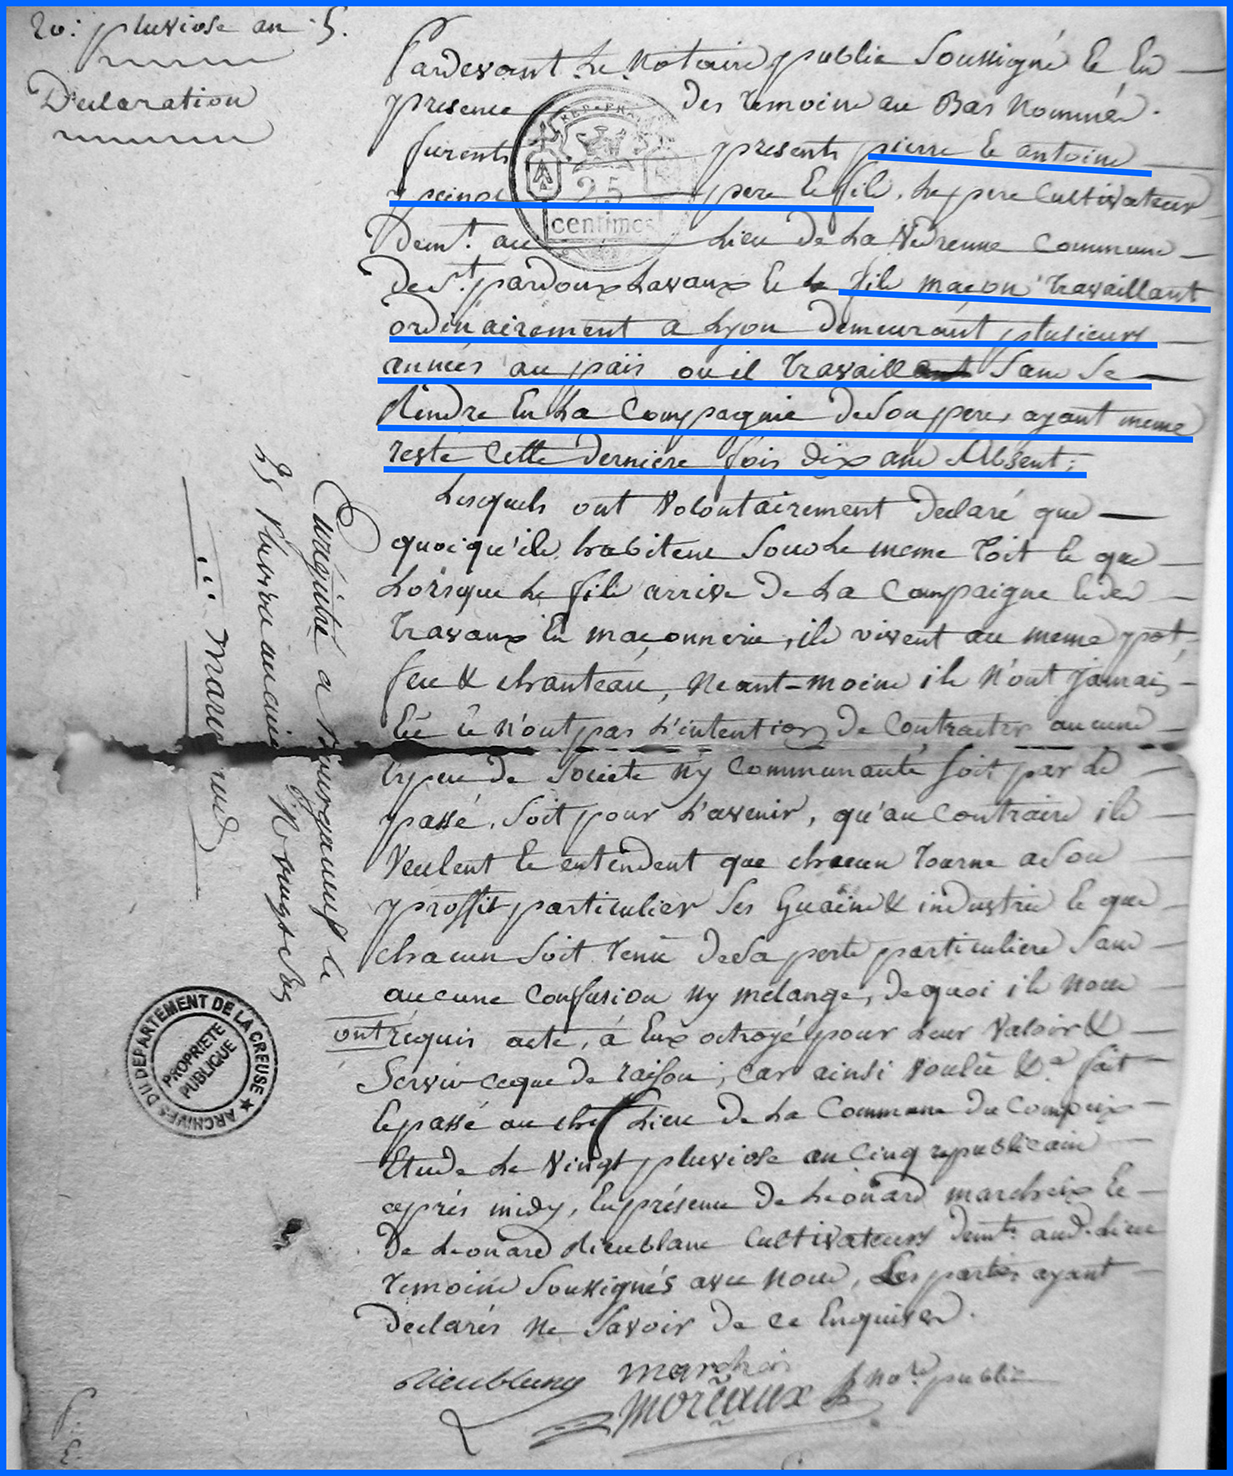 20: pluviose an 5.
Declaration
Pardevant Le Notaire public Soussigné Et En
presence des temoins au Bas Nommés.
furents presents pierre Et antoine
père Et fils, Le pere Cultivateur
Demt. au Lieu de La Vedrenne Commune
De St. pardoux Lavaux Et Le fils maçon travaillant
ordinairement a Lyon demeurant plusieurs
années au païs ou il travaill Sans Se
Rendre En La Compagnie de Son pere, ayant meme
resté Cette derniere fois dix ans Absent;
Lesquels ont Volontairement declaré que
quoiqu'ils habitent Sous Le meme Toit Et que
Lorsque Le fils arrive de La Campaigne Et des
travaux En maçonnerie, ils vivent au meme pot,
feu & chanteau, Neant-moins ils N'ont jamais
Eû Et N'ont pas L'intention de Contracter aucune
Espece de Societé Ny Communauté Soit par Le
passé, Soit pour L'avenir, qu'au Contraire ils
Veulent Et entendent que chacun tourne a Son
proffit particulier Ses Guains & industrie Et que
chacun Soit Tenû de Sa perte particuliere Sans
aucune Confusion Ny mélange, de quoi ils Nous
ont réquis acte, à Eux octroyé pour Leur Valoir &
Servir ceque de raison; car ainsi Voulû &a fait
Et passé au chef Lieu de La Commune du Compeix
Etude Le Vingt pluviose an Cinq republicain
après midy, En présence de Léonard marcheix Et
de Léonard Rieublanc Cultivateurs demts. aud. Lieu
Temoins Soussignés avec Nous, Les parties ayant
declarés Ne Savoir de ce Enquises.
Rieublanc marcheix
moreaux No.re public
Enregistré a Bourganeuf le
25 Pluviose an cinq
REP. FRA
25
centimes
ARCHIVES DU DEPARTEMENT DE LA CREUSE ★
PROPRIETE
PUBLIQUE